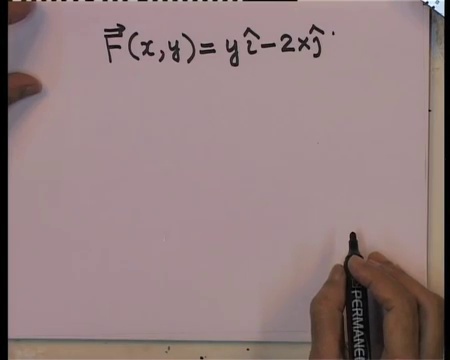 F⃗(x,y) = yî − 2xĵ
PERMANE